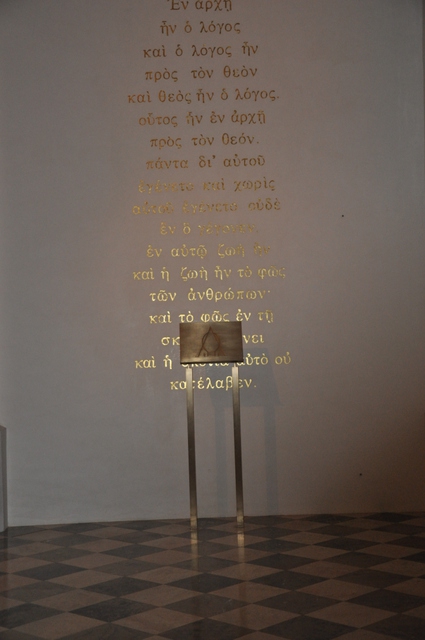 Ἐν ἀρχῇ
ἦν ὁ λόγος
καὶ ὁ λόγος ἦν
πρὸς τὸν θεὸν
καὶ θεὸς ἦν ὁ λόγος.
οὗτος ἦν ἐν ἀρχῇ
πρὸς τὸν θεόν.
πάντα δι' αὐτοῦ
ἐγένετο καὶ χωρὶς
αὐτοῦ ἐγένετο οὐδὲ
ἓν ὃ γέγονεν.
ἐν αὐτῷ ζωὴ ἦν
καὶ ἡ ζωὴ ἦν τὸ φῶς
τῶν ἀνθρώπων·
καὶ τὸ φῶς ἐν τῇ
καὶ ἡ σκοτία αὐτὸ οὐ
κατέλαβεν.